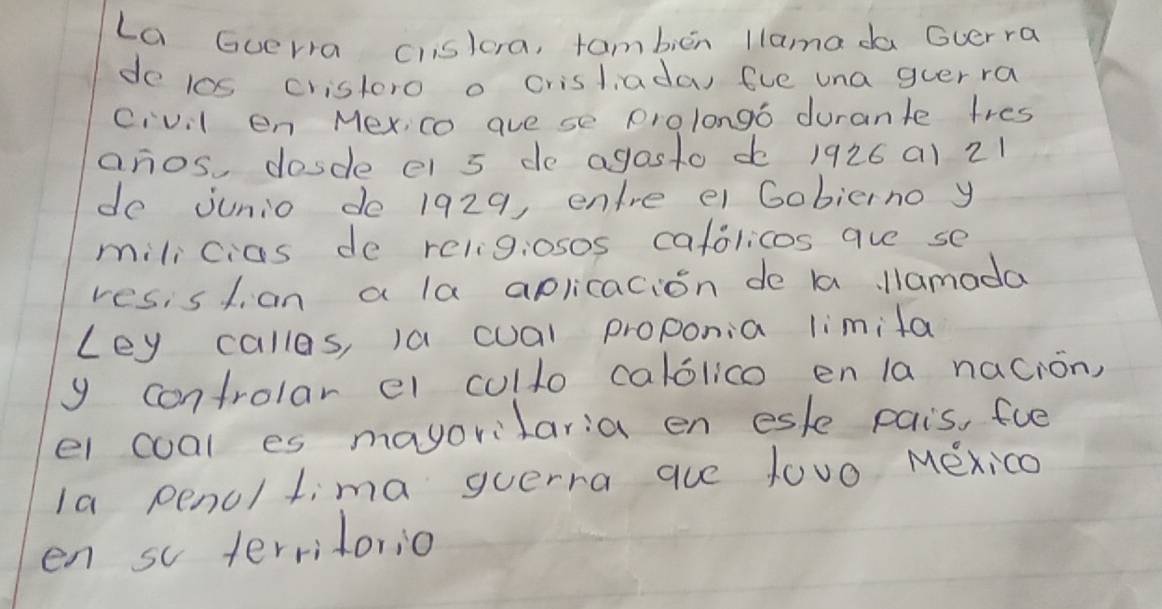 La Guerra cristera, también llamada Guerra
de los cristero o cristiada, fue una guerra
civil en Mexico que se prolongó durante tres
años, dosde el 5 de agosto de 1926 al 21
de junio de 1929, entre el Gobierno y
milicias de religiosos católicos que se
resistian a la aplicación de la llamada
Ley calles, la cual proponia limita
y controlar el culto católico en la nación,
el cual es mayoritaria en este pais, fue
la penultima guerra que tuvo México
en su territorio